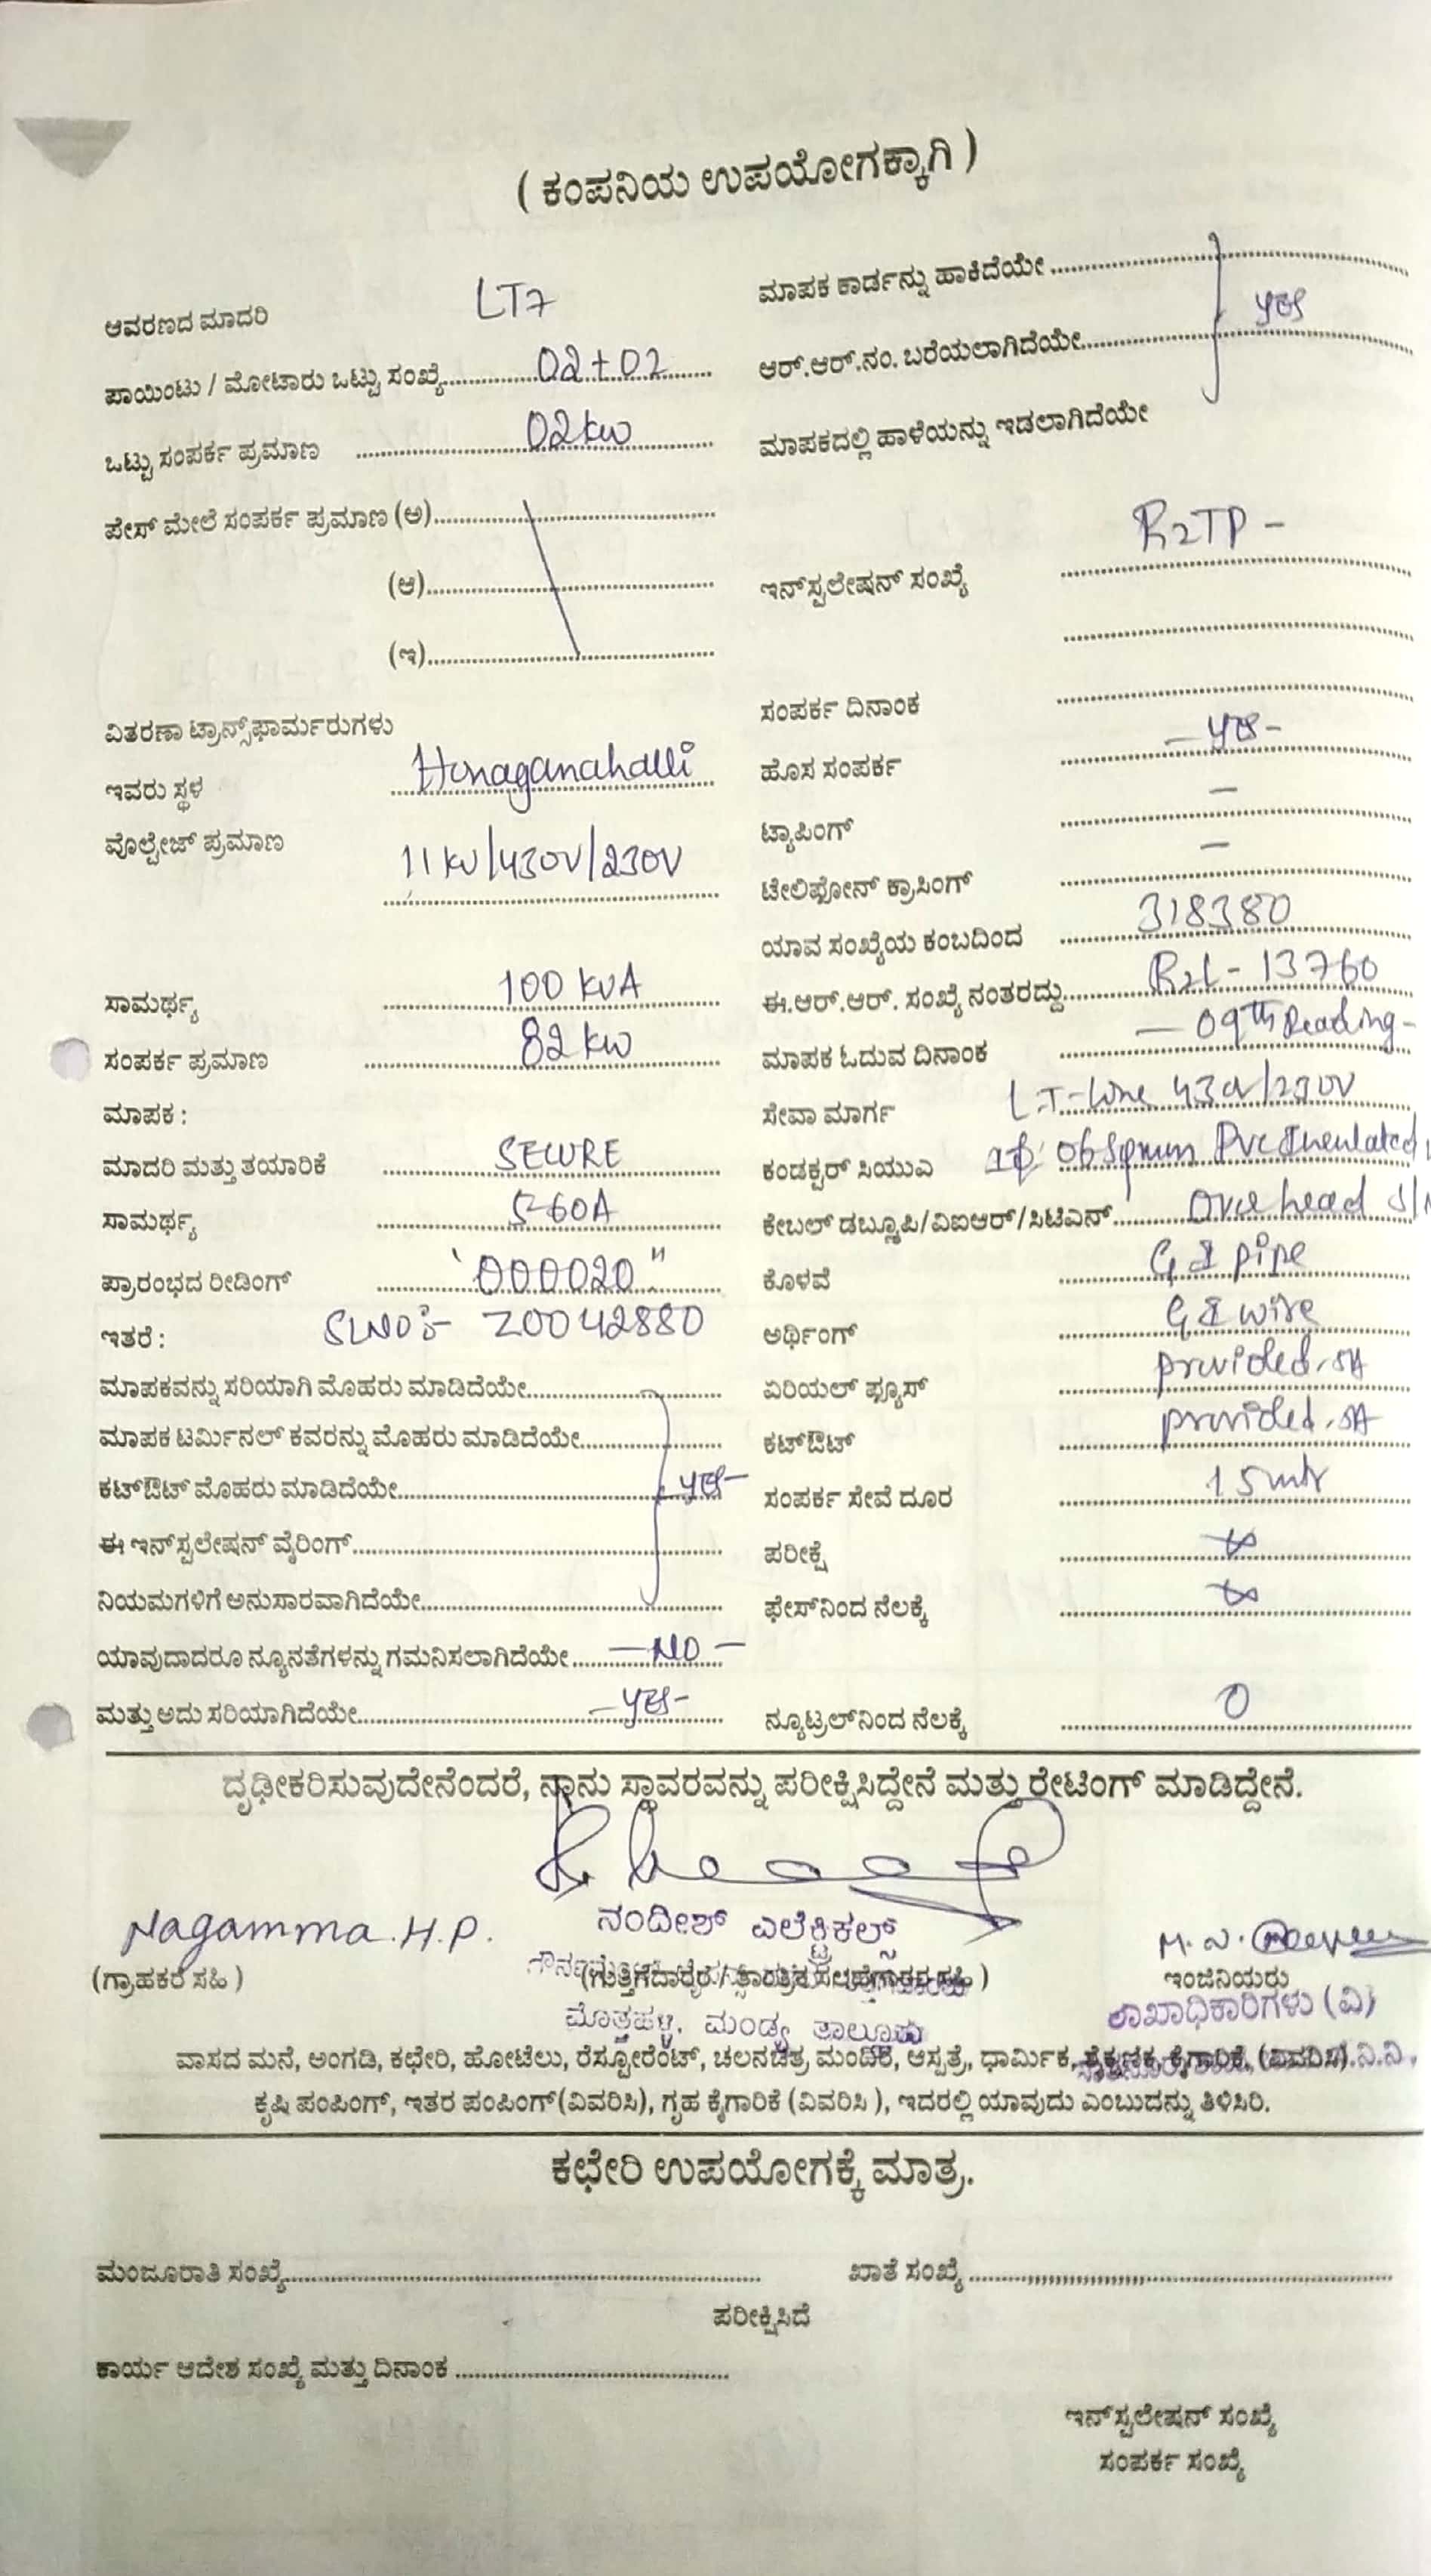 ( ಕಂಪನಿಯ ಉಪಯೋಗಕ್ಕಾಗಿ )
ಆವರಣದ ಮಾದರಿ LT7
ಪಾಯಿಂಟು / ಮೋಟಾರು ಒಟ್ಟು ಸಂಖ್ಯೆ 02+02
ಒಟ್ಟು ಸಂಪರ್ಕ ಪ್ರಮಾಣ 02kw
ಪೇಸ್ ಮೇಲೆ ಸಂಪರ್ಕ ಪ್ರಮಾಣ (ಅ)
(ಆ)
(ಇ)
ವಿತರಣಾ ಟ್ರಾನ್ಸ್‌ಫಾರ್ಮರುಗಳು
ಇವರು ಸ್ಥಳ Honaganahalli
ವೊಲ್ಟೇಜ್ ಪ್ರಮಾಣ 11KV/430V/230V
ಸಾಮರ್ಥ್ಯ 100 KVA
ಸಂಪರ್ಕ ಪ್ರಮಾಣ 82 kw
ಮಾಪಕ :
ಮಾದರಿ ಮತ್ತು ತಯಾರಿಕೆ SECURE
ಸಾಮರ್ಥ್ಯ 5-60A
ಪ್ರಾರಂಭದ ರೀಡಿಂಗ್ "000020"
ಇತರೆ : SLNO:- Z0042880
ಮಾಪಕವನ್ನು ಸರಿಯಾಗಿ ಮೊಹರು ಮಾಡಿದೆಯೇ
ಮಾಪಕ ಟರ್ಮಿನಲ್ ಕವರನ್ನು ಮೊಹರು ಮಾಡಿದೆಯೇ
ಕಟ್‌ಔಟ್ ಮೊಹರು ಮಾಡಿದೆಯೇ yes-
ಈ ಇನ್‌ಸ್ಟಲೇಷನ್ ವೈರಿಂಗ್
ನಿಯಮಗಳಿಗೆ ಅನುಸಾರವಾಗಿದೆಯೇ
ಯಾವುದಾದರೂ ನ್ಯೂನತೆಗಳನ್ನು ಗಮನಿಸಲಾಗಿದೆಯೇ -NO-
ಮತ್ತು ಅದು ಸರಿಯಾಗಿದೆಯೇ -yes-
ಮಾಪಕ ಕಾರ್ಡನ್ನು ಹಾಕಿದೆಯೇ
ಆರ್.ಆರ್.ನಂ. ಬರೆಯಲಾಗಿದೆಯೇ yes
ಮಾಪಕದಲ್ಲಿ ಹಾಳೆಯನ್ನು ಇಡಲಾಗಿದೆಯೇ
ಇನ್‌ಸ್ಟಲೇಷನ್ ಸಂಖ್ಯೆ R2TP -
ಸಂಪರ್ಕ ದಿನಾಂಕ
ಹೊಸ ಸಂಪರ್ಕ -yes-
ಟ್ಯಾಪಿಂಗ್ -
ಟೇಲಿಫೋನ್ ಕ್ರಾಸಿಂಗ್ -
ಯಾವ ಸಂಖ್ಯೆಯ ಕಂಬದಿಂದ 318380
ಈ.ಆರ್.ಆರ್. ಸಂಖ್ಯೆ ನಂತರದ್ದು R2L - 13760
ಮಾಪಕ ಓದುವ ದಿನಾಂಕ - 09th Reading -
ಸೇವಾ ಮಾರ್ಗ L.T-Line 430V/230V
ಕಂಡಕ್ಟರ್ ಸಿಯುಎ 06 Sqmm Pvc
ಕೇಬಲ್ ಡಬ್ಲ್ಯೂಪಿ/ವಿಐಆರ್/ಸಿಟಿಎನ್ Over head
ಕೊಳವೆ G I pipe
ಅರ್ಥಿಂಗ್ G I wire
ಏರಿಯಲ್ ಫ್ಯೂಸ್ provided. 5A
ಕಟ್‌ಔಟ್ provided. 5A
ಸಂಪರ್ಕ ಸೇವೆ ದೂರ 15 mtr
ಪರೀಕ್ಷೆ
ಫೇಸ್‌ನಿಂದ ನೆಲಕ್ಕೆ
ನ್ಯೂಟ್ರಲ್‌ನಿಂದ ನೆಲಕ್ಕೆ 0
ದೃಢೀಕರಿಸುವುದೇನೆಂದರೆ, ನಾನು ಸ್ಥಾವರವನ್ನು ಪರೀಕ್ಷಿಸಿದ್ದೇನೆ ಮತ್ತು ರೇಟಿಂಗ್ ಮಾಡಿದ್ದೇನೆ.
Nagamma. H.P. ನಂದೀಶ್ ಎಲೆಕ್ಟ್ರಿಕಲ್ಸ್ M. N.
(ಗ್ರಾಹಕರ ಸಹಿ ) (ಗುತ್ತಿಗೆದಾರರ / ತಾಂತ್ರಿಕ ಸಲಹೆಗಾರರ ಸಹಿ ) ಇಂಜಿನಿಯರು
ಮೊತ್ತಹಳ್ಳಿ, ಮಂಡ್ಯ ತಾಲ್ಲೂಕು ಶಾಖಾಧಿಕಾರಿಗಳು (ವಿ)
ವಾಸದ ಮನೆ, ಅಂಗಡಿ, ಕಛೇರಿ, ಹೋಟೆಲು, ರೆಸ್ಟೋರೆಂಟ್, ಚಲನಚಿತ್ರ ಮಂದಿರ, ಆಸ್ಪತ್ರೆ, ಧಾರ್ಮಿಕ, ಶೈಕ್ಷಣಿಕ, ಕೈಗಾರಿಕೆ, (ವಿವರಿಸಿ)
ಕೃಷಿ ಪಂಪಿಂಗ್, ಇತರ ಪಂಪಿಂಗ್(ವಿವರಿಸಿ), ಗೃಹ ಕೈಗಾರಿಕೆ (ವಿವರಿಸಿ ), ಇದರಲ್ಲಿ ಯಾವುದು ಎಂಬುದನ್ನು ತಿಳಿಸಿರಿ.
ಕಛೇರಿ ಉಪಯೋಗಕ್ಕೆ ಮಾತ್ರ.
ಮಂಜೂರಾತಿ ಸಂಖ್ಯೆ ಖಾತೆ ಸಂಖ್ಯೆ
ಪರೀಕ್ಷಿಸಿದೆ
ಕಾರ್ಯ ಆದೇಶ ಸಂಖ್ಯೆ ಮತ್ತು ದಿನಾಂಕ
ಇನ್‌ಸ್ಟಲೇಷನ್ ಸಂಖ್ಯೆ
ಸಂಪರ್ಕ ಸಂಖ್ಯೆ